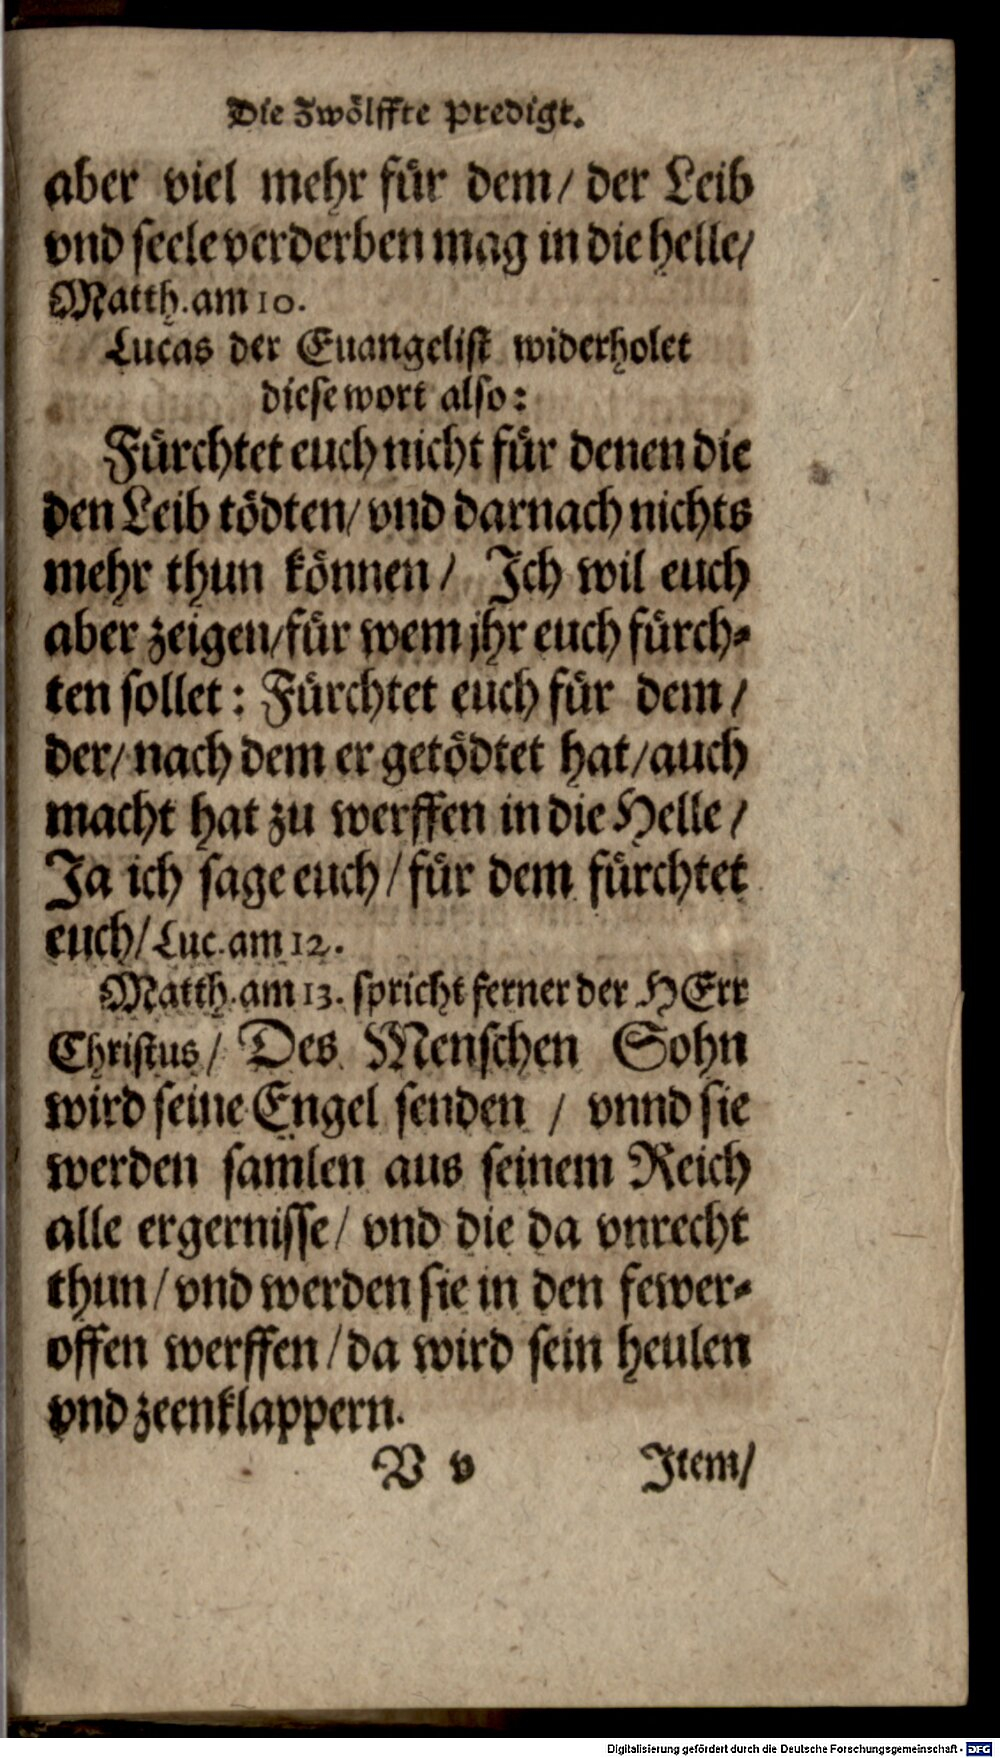 Die Zwölffte Predigt.
aber viel mehr für dem/ der Leib
vnd seele verderben mag in die helle/
Matth. am 10.
Lucas der Euangelist widerholet
diese wort also:
Fürchtet euch nicht für denen die
den Leib tödten/ vnd darnach nichts
mehr thun können/ Ich wil euch
aber zeigen/ für wem jhr euch fürch-
ten sollet: Fürchtet euch für dem/
der/ nach dem er getödtet hat/ auch
macht hat zu werffen in die Helle/
Ja ich sage euch/ für dem fürchtet
euch/ Luc. am 12.
Matth. am 13. spricht ferner der HErr
Christus/ Des Menschen Sohn
wird seine Engel senden / vnnd sie
werden samlen aus seinem Reich
alle ergernisse/ vnd die da vnrecht
thun/ vnd werden sie in den fewer-
offen werffen/ da wird sein heulen
vnd zeenklappern.
V v Item/
Digitalisierung gefördert durch die Deutsche Forschungsgemeinschaft - DFG